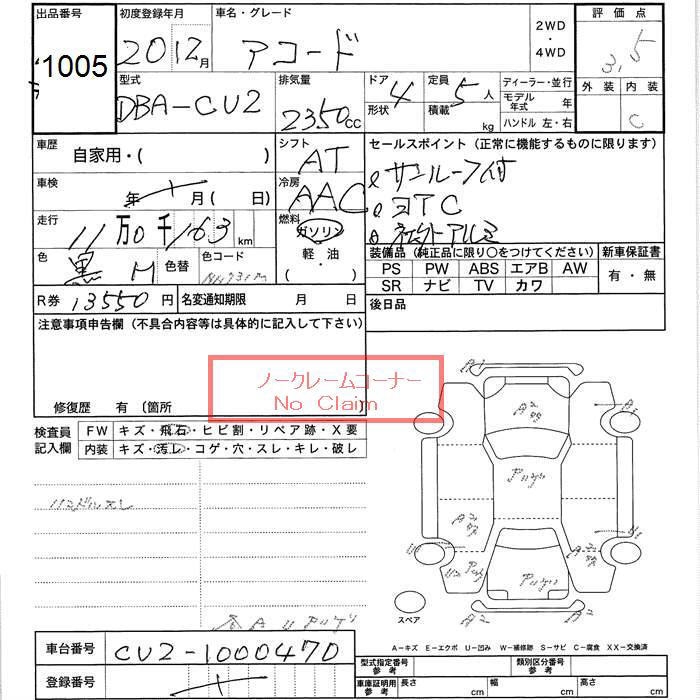 出品番号 初度登録年月 車名・グレード 2WD・4WD 評価点
1005 20 12月 アコード 3.5
型式 排気量 ドア 形状 4 定員 5人 積載 kg ディーラー・並行 外装 内装
DBA-CU2 2350cc モデル年式 年 C
ハンドル 左・右
車歴 シフト セールスポイント (正常に機能するものに限ります)
自家用・( ) AT サンルーフ付
車検 年 月 ( 日) 冷房 AAC ETC
走行 11万0千163km 燃料 ガソリン 社外アルミ
色 黒M 色替 色コード 軽・油 装備品 (純正品に限り○をつけてください) 新車保証書
・( ) PS PW ABS エアB AW 有・無
SR ナビ TV カワ
R券 13550円 名変通知期限 月 日 後日品
注意事項申告欄 (不具合内容等は具体的に記入して下さい)
ノークレームコーナー
No Claim
修復歴 有 〔箇所 〕
検査員記入欄 FW キズ・飛石・ヒビ割・リペア跡・X要
内装 キズ・汚レ・コゲ・穴・スレ・キレ・破レ
スペア
A-キズ E-エクボ U-凹み W-補修跡 S-サビ C-腐食 XX-交換済
車台番号 CU2-1000470 型式指定番号 参考 類別区分番号 参考
登録番号 車庫証明用 参考 長さ cm 幅 cm 高さ cm